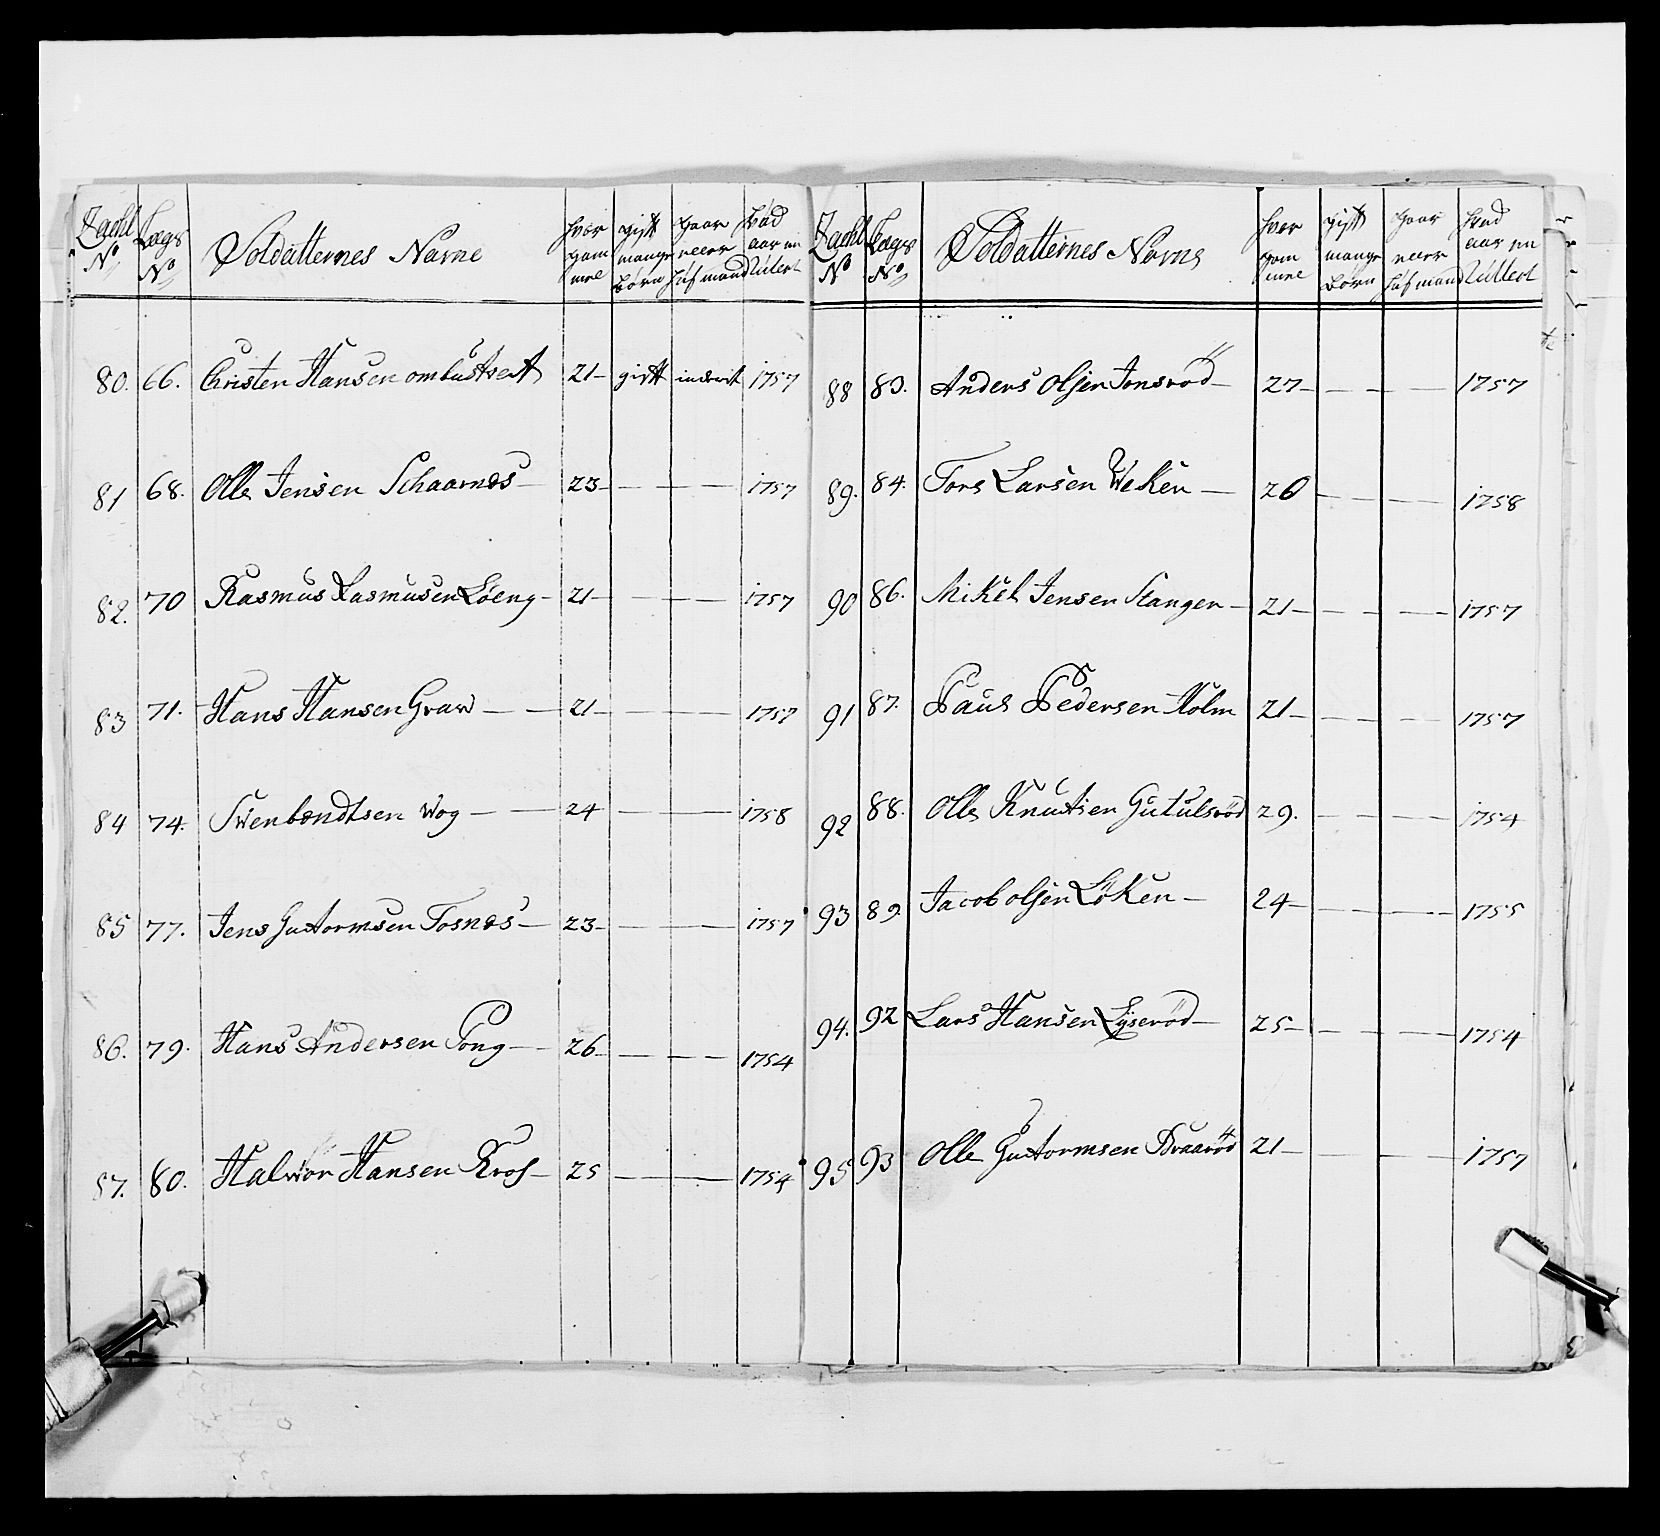 Zachl No Lægs No Soldatternes Navne hvor gam mel gift mange Børn hvad aar en
80. 66. Christen Hansen 21 gift 1757
81 68. Olle Jensen Schaarnes 23 1757
82. 70 Rasmus Rasmusen Löeng 21 1757
83 71. Hans Hansen Graw 21 1757
84 74. Swenbændtsen Wog 24 1758
85 77. Jens Guttormsen Tosnæs 23 1757
86. 79. Hans Andersen Tong 26 1754
87. 80. Halwor Hansen Kros 25 1754
Zachl No Lægs No Soldatternes Navne hvor gam mel gift mange Børn hvad aar en
88 83. Anders Olsen Jonsröd 27 1757
89. 84. Tors Larsen Weken 20 1758
90 86. Mikel Jensen Stangen 21 1757
91 87. Paul Pedersen Holm 21 1757
92 88. Olle Knutsen Gutulsröd 29. 1754
93 89 Jacob olsen Löken 24 1755
94. 92 Lars Hansen Lyseröd 25 1754
95 93 Olle Guttormsen Braaröd 21 1757